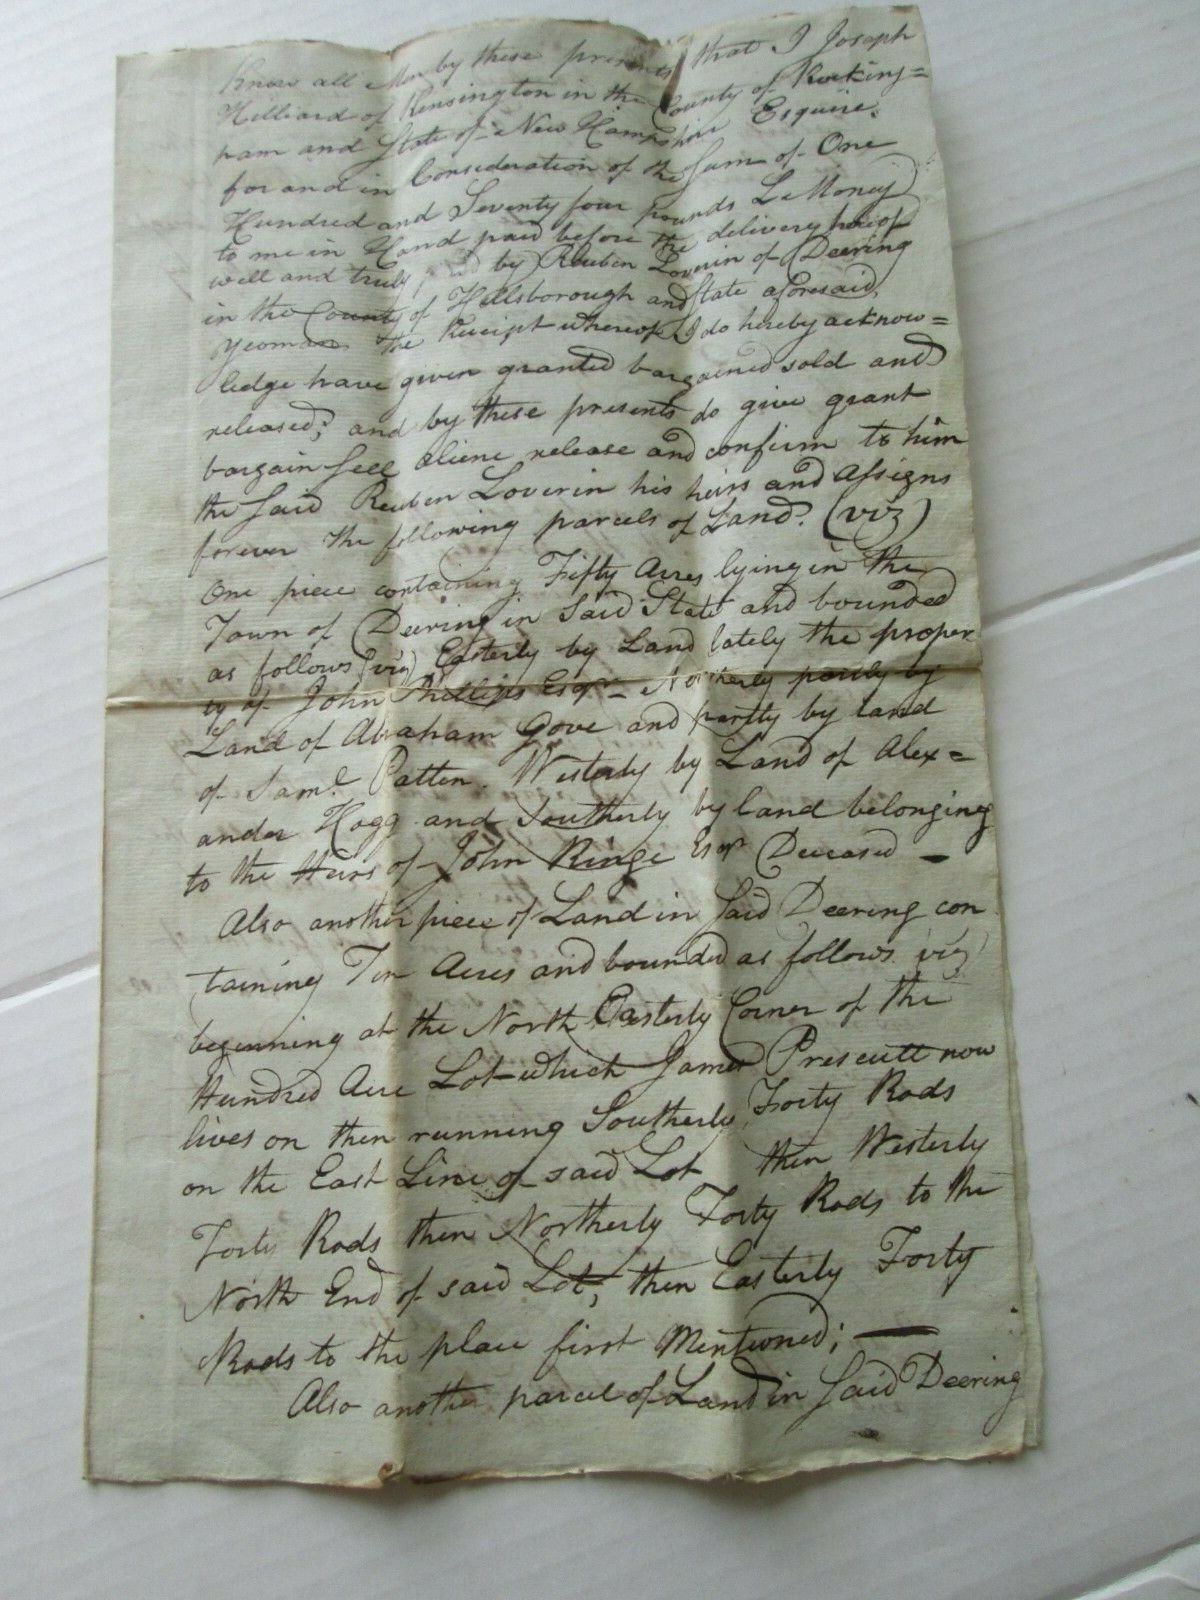 Know all Men by these presents that I Joseph
Hilliard of Kensington in the County of Rocking=
ham and State of New Hampshire Esquire.
for and in Consideration of the Sum of One
Hundred and Seventy four pounds L Money
to me in Hand paid before the delivery hereof
well and truly paid by Reuben Loverin of Deering
in the County of Hillsborough and State aforesaid
Yeoman The Receipt whereof I do hereby acknow=
ledge have given granted bargained sold and
released; and by these presents do give grant
bargain Sell aliene release and confirm to him
the Said Reuben Loverin his heirs and Assigns
forever the following parcels of Land. (viz)
One piece containing Fifty Acres lying in the
Town of Deering in Said State and bounded
as follows (viz) Easterly by Land lately the proper
ty of John Phillips Esqr - Northerly partly by
Land of Abraham Gove and partly by land
of Saml. Patten. Westerly by Land of Alex=
ander Hogg and Southerly by land belonging
to the Heirs of John Ringe Esqr Deceased -
Also another piece of Land in Said Deering con
taining Ten Acres and bounded as follows viz
beginning at the North Easterly Corner of the
Hundred Acre Lot which James Prescutt now
lives on then running Southerly Forty Rods
on the East Line of said Lot then Westerly
Forty Rods then Northerly Forty Rods to the
North End of said Lot; then Easterly Forty
Rods to the place first Mentioned; -
Also another parcel of Land in Said Deering